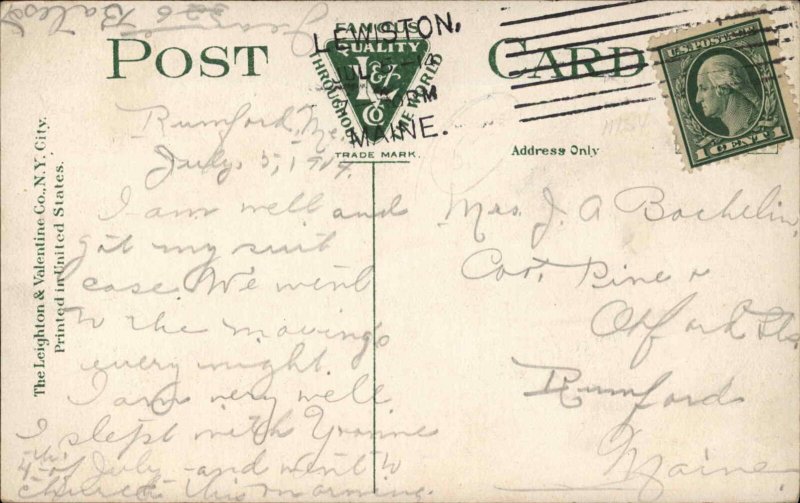 POST CARD
FAMOUS
QUALITY
THROUGHOUT THE WORLD
L&V
Co
TRADE MARK.
LEWISTON,
MAINE.
U.S. POSTAGE
1 CENT 1
Address Only
The Leighton & Valentine Co., N.Y. City.
Printed in United States.
Rumford, Me.
July 5, 1914.
I am well and
got my suit
case. We went
to the movings
every night.
I am very well
I slept with Yvonne
4th of July and went to
church this morning.
Mrs. J. A Bachelin,
Cor. Pine &
Oxford Sts
Rumford
Maine